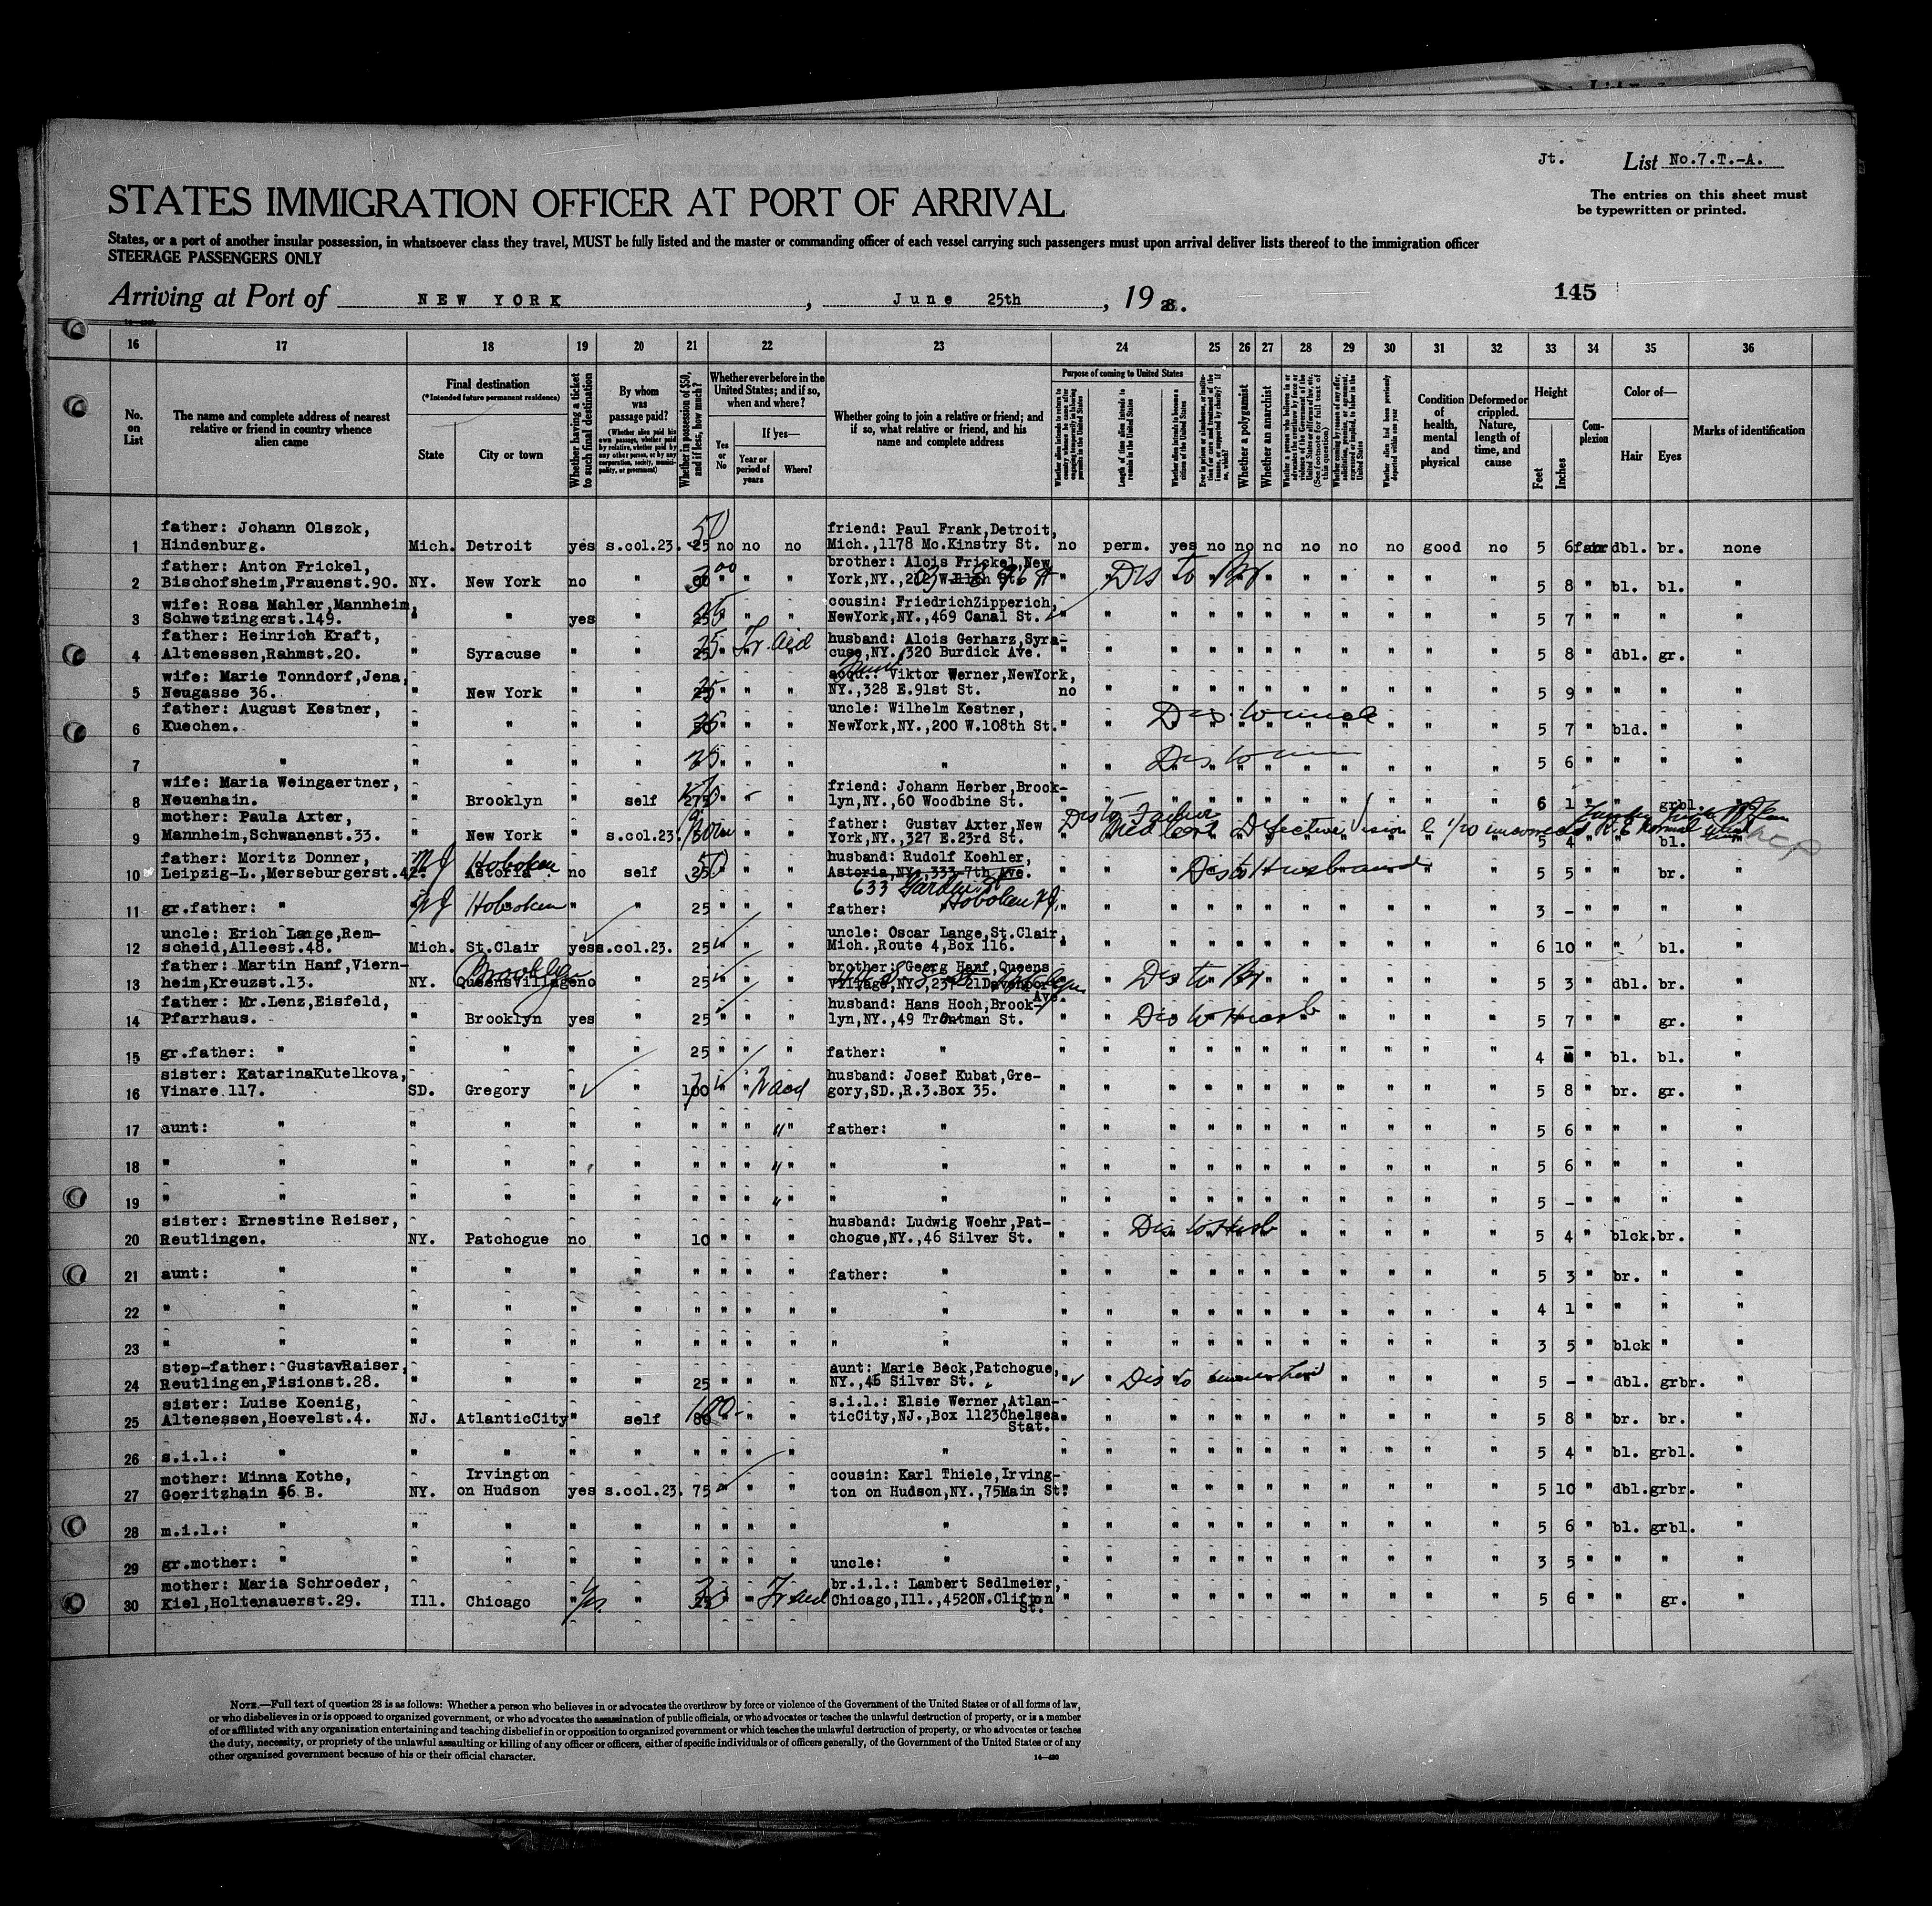 Jt. List No.7.T.-A.
STATES IMMIGRATION OFFICER AT PORT OF ARRIVAL
The entries on this sheet must
be typewritten or printed.
States, or a port of another insular possession, in whatsoever class they travel, MUST be fully listed and the master or commanding officer of each vessel carrying such passengers must upon arrival deliver lists thereof to the immigration officer
STEERAGE PASSENGERS ONLY
Arriving at Port of NEW YORK, June 25th, 19 8.
145
16 17 18 19 20 21 22 23 24 25 26 27 28 29 30 31 32 33 34 35 36
No. on List
The name and complete address of nearest relative or friend in country whence alien came
Final destination
(*Intended future permanent residence)
State
City or town
Whether having a ticket to such final destination
By whom was passage paid?
(Whether alien paid his own passage, whether paid by relative, whether paid by any other person, or by any corporation, society, municipality, or government)
Whether in possession of $50, and if less, how much?
Whether ever before in the United States; and if so, when and where?
Yes or No
If yes—
Year or period of years
Where?
Whether going to join a relative or friend; and if so, what relative or friend, and his name and complete address
Purpose of coming to United States
Length of time alien intends to remain in the United States
Whether alien intends to become a citizen of the United States
Whether a polygamist
Whether an anarchist
Whether alien had been previously deported within one year
Condition of health, mental and physical
Deformed or crippled. Nature, length of time, and cause
Height
Feet
Inches
Complexion
Color of—
Hair
Eyes
Marks of identification
father: Johann Olszok, friend: Paul Frank,Detroit,
1 Hindenburg. Mich. Detroit yes s.col.23. 25 no no no Mich.,1178 Mc.Kinstry St. no perm. yes no no no no no no good no 5 6 fair dbl. br. none
father: Anton Frickel, brother: Alois Frickel,New
2 Bischofsheim,Frauenst.90. NY. New York no " " " " York,NY., Dis to Br 5 8 " bl. bl. "
wife: Rosa Mahler,Mannheim, cousin: FriedrichZipperich,
3 Schwetzingerst.149. " " yes " 25 " " " NewYork,NY.,469 Canal St. 5 7 " " " "
father: Heinrich Kraft, husband: Alois Gerharz,Syra-
4 Altenessen,Rahmst.20. " Syracuse " " 25 " " " cuse,NY.,320 Burdick Ave. 5 8 " dbl. gr. "
wife: Marie Tonndorf,Jena, Viktor Werner,NewYork,
5 Neugasse 36. " New York " " 25 " " " NY.,328 E.91st St. no 5 9 " " " "
father: August Kestner, uncle: Wilhelm Kestner,
6 Kuechen. " " " " " " " NewYork,NY.,200 W.108th St. Dis to uncle 5 7 " bld. " "
7 " " " " " 25 " " " " Dis to 5 6 " " " "
wife: Maria Weingaertner, friend: Johann Herber,Brook-
8 Neuenhain. " Brooklyn " self 275 " " " lyn,NY.,60 Woodbine St. 6 1 " " grbl. "
mother: Paula Axter, father: Gustav Axter,New Dis to Father
9 Mannheim,Schwanenst.33. " New York " s.col.23. " " " York,NY.,327 E.23rd St. Med Cert Defective Vision 5 4 " " bl. "
father: Moritz Donner, husband: Rudolf Koehler,
10 Leipzig-L.,Merseburgerst.42. NJ Hoboken Astoria no self 25 50 " " " Astoria,NY.,333-7th Ave. Dis to Husband 5 5 " " br. "
633 Garden St
11 gr.father: " NJ Hoboken " " 25 " " " father: " Hoboken NJ. 3 - " " " "
uncle: Erich Lange,Rem- uncle: Oscar Lange,St.Clair,
12 scheid,Alleest.48. Mich. St.Clair yes s.col.23. 25 " " " Mich.,Route 4,Box 116. 6 10 " " bl. "
father: Martin Hanf,Viern- brother: Georg Hanf,Queens
13 heim,Kreuzst.13. NY. Brooklyn QueensVillage no " 25 " " " Village,NY., Ave. Dis to Br 5 3 " dbl. br. "
father: Mr.Lenz,Eisfeld, husband: Hans Hoch,Brook-
14 Pfarrhaus. " Brooklyn yes " 25 " " " lyn,NY.,49 Troutman St. Dis to Husb 5 7 " " gr. "
15 gr.father: " " " " " 25 " " " father: " 4 " bl. bl. "
sister: KatarinaKutelkova, husband: Josef Kubat,Gre-
16 Vinare 117. SD. Gregory " " 100 " " " gory,SD.,R.3.Box 35. 5 8 " br. gr. "
17 aunt: " " " " " " " " " father: " 5 6 " " " "
18 " " " " " " " " " " " " 5 6 " " " "
19 " " " " " " " " " " " " 5 - " " " "
sister: Ernestine Reiser, husband: Ludwig Woehr,Pat-
20 Reutlingen. NY. Patchogue no " 10 " " " chogue,NY.,46 Silver St. Dis to Husb 5 4 " blck. br. "
21 aunt: " " " " " " " " " father: " 5 3 " br. " "
22 " " " " " " " " " " " " 4 1 " " " "
23 " " " " " " " " " " " " 3 5 " blck " "
step-father: GustavRaiser, aunt: Marie Beck,Patchogue,
24 Reutlingen,Fisionst.28. " " " " 25 " " " NY.,46 Silver St. Dis to 5 - " dbl. grbr. "
sister: Luise Koenig, s.i.l.: Elsie Werner,Atlan-
25 Altenessen,Hoevelst.4. NJ. AtlanticCity " self 80 100- " " " ticCity,NJ.,Box 1123Chelsea Stat. 5 8 " br. br. "
26 s.i.l.: " " " " " " " " " " 5 4 " bl. grbl. "
mother: Minna Kothe, Irvington cousin: Karl Thiele,Irving-
27 Goeritzhain 46 B. NY. on Hudson yes s.col.23. 75 " " " ton on Hudson,NY.,75Main St. 5 10 " dbl. grbr. "
28 m.i.l.: " " " " " " " " " " 5 6 " bl. grbl. "
29 gr.mother: " " " " " " " " " uncle: " 3 5 " " " "
mother: Maria Schroeder, br.i.l.: Lambert Sedlmeier,
30 Kiel,Holtenauerst.29. Ill. Chicago " yes " 25 " " " Chicago,Ill.,4520N.Clifton St. 5 6 " " gr. "
NOTE.—Full text of question 28 is as follows: Whether a person who believes in or advocates the overthrow by force or violence of the Government of the United States or of all forms of law,
or who disbelieves in or is opposed to organized government, or who advocates the assassination of public officials, or who advocates or teaches the unlawful destruction of property, or is a member
of or affiliated with any organization entertaining and teaching disbelief in or opposition to organized government or which teaches the unlawful destruction of property, or who advocates or teaches
the duty, necessity, or propriety of the unlawful assaulting or killing of any officer or officers, either of specific individuals or of officers generally, of the Government of the United States or of any
other organized government because of his or their official character. 14—430